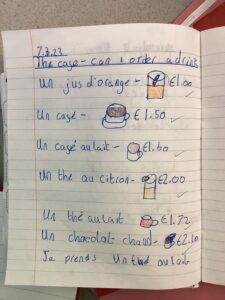 7.3.23
The cage - can i order a drink
Un jus d'orange - €1.00
Un café - €1.50
Un café au lait - €1.60
Un thé au citron - €2.00
Un thé au lait - €1.72
Un chocolat chaud - €2.10
Je prends Un thé au lait